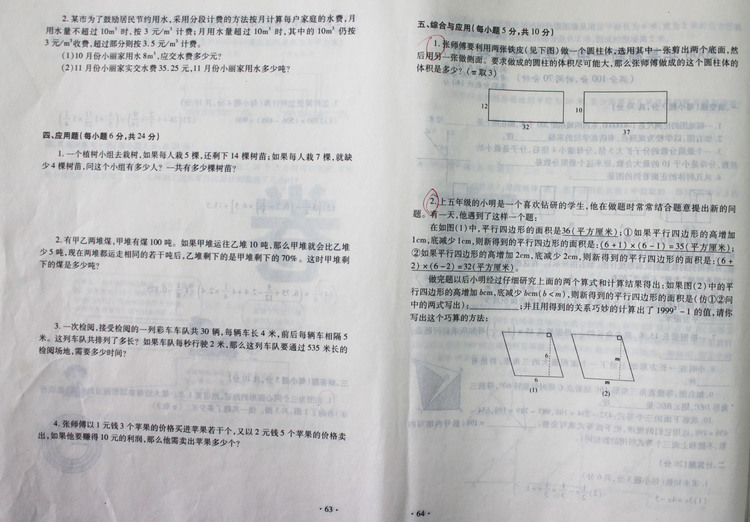 2. 某市为了鼓励居民节约用水,采用分段计费的方法按月计算每户家庭的水费,月
用水量不超过10m³时,按3元/m³计费;月用水量超过10m³时,其中的10m³仍按
3元/m³收费,超过部分则按3.5元/m³计费。
(1)10月份小丽家用水8m³,应交水费多少元?
(2)11月份小丽家实交水费35.25元,11月份小丽家用水多少吨?
四、应用题(每小题6分,共24分)
1. 一个植树小组去栽树,如果每人栽5棵,还剩下14棵树苗;如果每人栽7棵,就缺
少4棵树苗,问这个小组有多少人? 一共有多少棵树苗?
2. 有甲乙两堆煤,甲堆有煤100吨。如果甲堆运往乙堆10吨,那么甲堆就会比乙堆
少5吨,现在两堆都运走相同的若干吨后,乙堆剩下的是甲堆剩下的70%。这时甲堆剩
下的煤是多少吨?
3. 一次检阅,接受检阅的一列彩车车队共30辆,每辆车长4米,前后每辆车相隔5
米。这列车队共排列了多长? 如果车队每秒行驶2米,那么这列车队要通过535米长的
检阅场地,需要多少时间?
4. 张师傅以1元钱3个苹果的价格买进苹果若干个,又以2元钱5个苹果的价格卖
出,如果他要赚得10元的利润,那么他需卖出苹果多少个?
·63·
五、综合与应用(每小题5分,共10分)
1. 张师傅要利用两张铁皮(见下图)做一个圆柱体,选用其中一张剪出两个底面,然
后用另一张做侧面。要求做成的圆柱的体积尽可能大,那么张师傅做成的这个圆柱体的
体积是多少? (π取3)
12
32
10
37
2. 上五年级的小明是一个喜欢钻研的学生,他在做题时常常结合题意提出新的问
题。有一天,他遇到了这样一个题:
在如图(1)中,平行四边形的面积是36(平方厘米);①如果平行四边形的高增加
1cm,底减少1cm,则新得到的平行四边形的面积是:(6+1)×(6-1)=35(平方厘米);
②如果平行四边形的高增加2cm,底减少2cm,则新得到的平行四边形的面积是:(6+
2)×(6-2)=32(平方厘米)。
做完题以后小明经过仔细研究上面的两个算式和计算结果得出:如果图(2)中的平
行四边形的高增加bcm,底减少bcm(b<m),则新得到的平行四边形的面积是(仿①②问
中的两式写出):;并且用得到的关系巧妙的计算出了1999²-1的值,请你
写出这个巧算的方法:
6
6
(1)
m
m
(2)
·64·